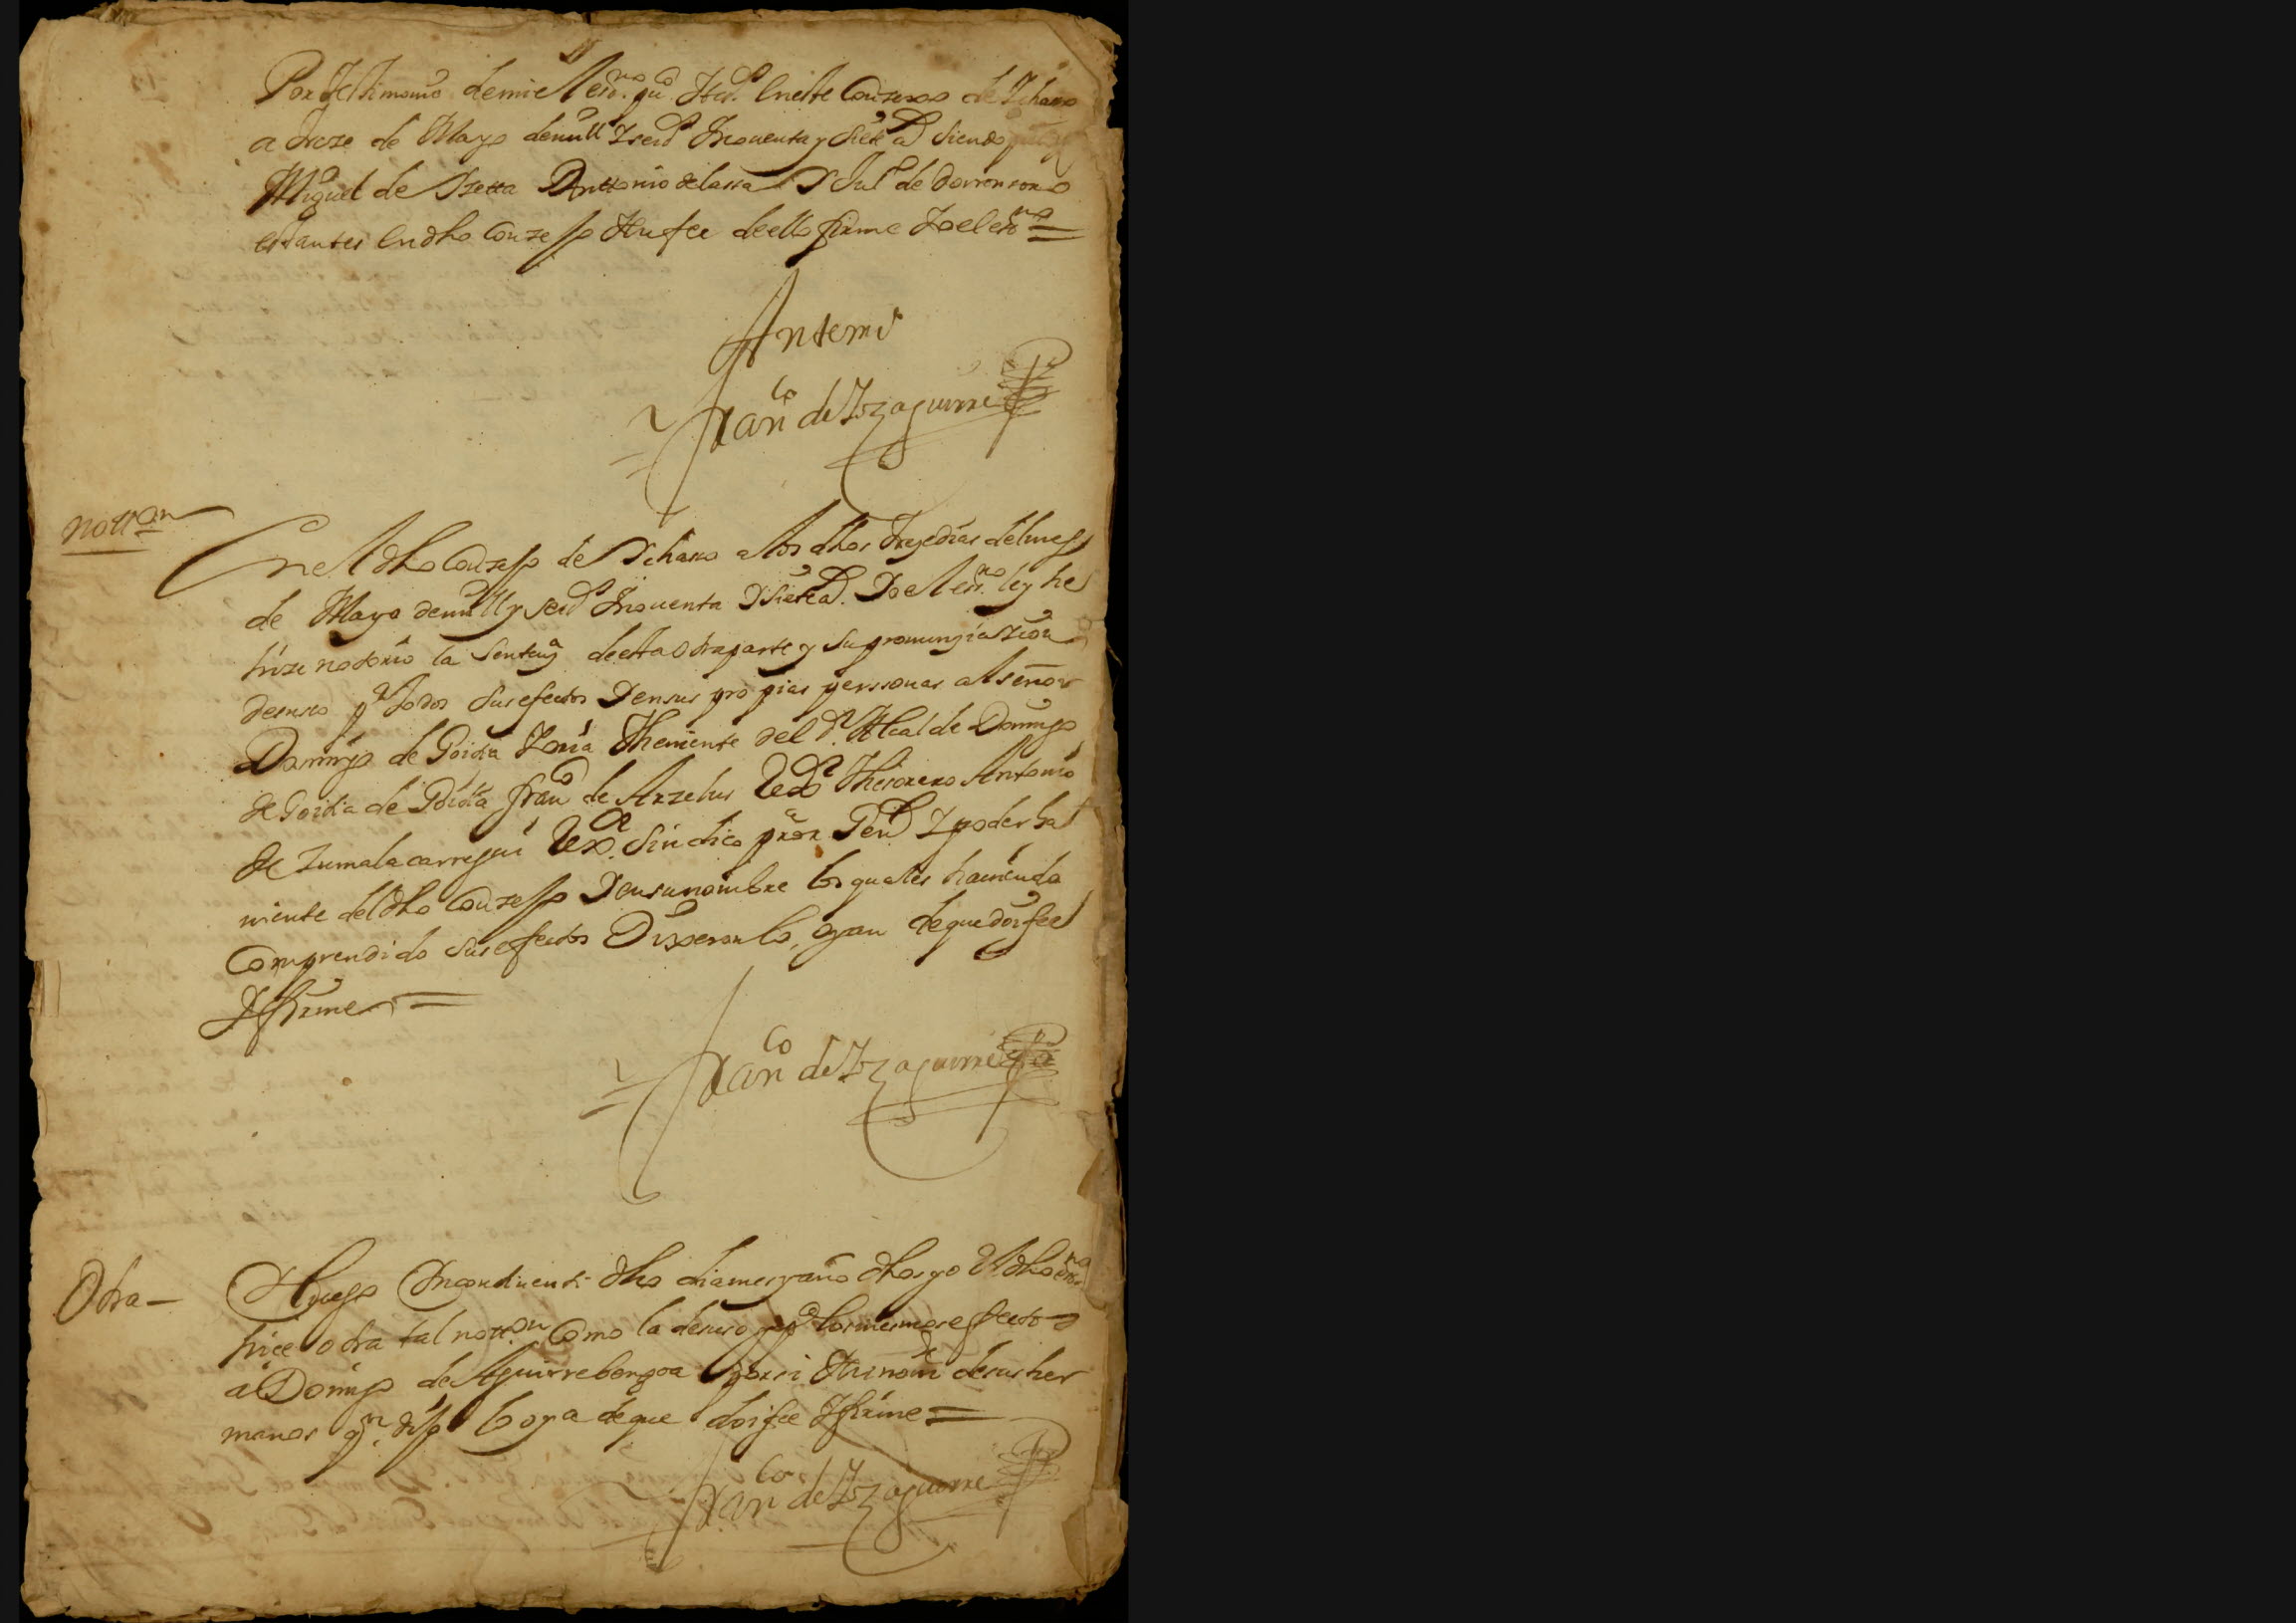 Por testimonio de mi el essno. puco. en este Conzexo de Ichasso
a treze de Mayo de mill y seis nouenta y siete as siendo
Miguel de Anttonio de lassa Y Jul de dorronsoro
estantes en dho Conzexo y en fee dello firme Yo el essno
Ante mi
Franco de Yzaguirre
notton
En el dho Conzejo de Ychasso a los dhos treze dias del mes
de Mayo de mill y seis nouenta y siete as. Yo el essno. ley he
hize notorio la sentena desta otra parte y su pronunziazion
de suso pa todos sus efectos Y en sus propias perssonas al señor
Domingo de Goitia Theniente del Alcalde Domingo
de Goitia de Goitia franco de Arzelus Thesorero Antonio
de Zumalacarregui sindico pror Genl Y poder ha
uiente del dho Conzejo Y en su nombre los quales hauiendo
Comprendido sus efectos Dixeron lo oyan de que doi fee
Y firme
Franco de Yzaguirre
Otra
Y luego Yncontinenti dho dia mes y año dhos yo el dho essno
hice otra tal notton. Como la de suso y pa los mismos efectos
a Domingo de Aguirrebengoa por si Y en nome de sus her
manos qn. dijo lo oya de que doi fee Y firme
Franco de Yzaguirre